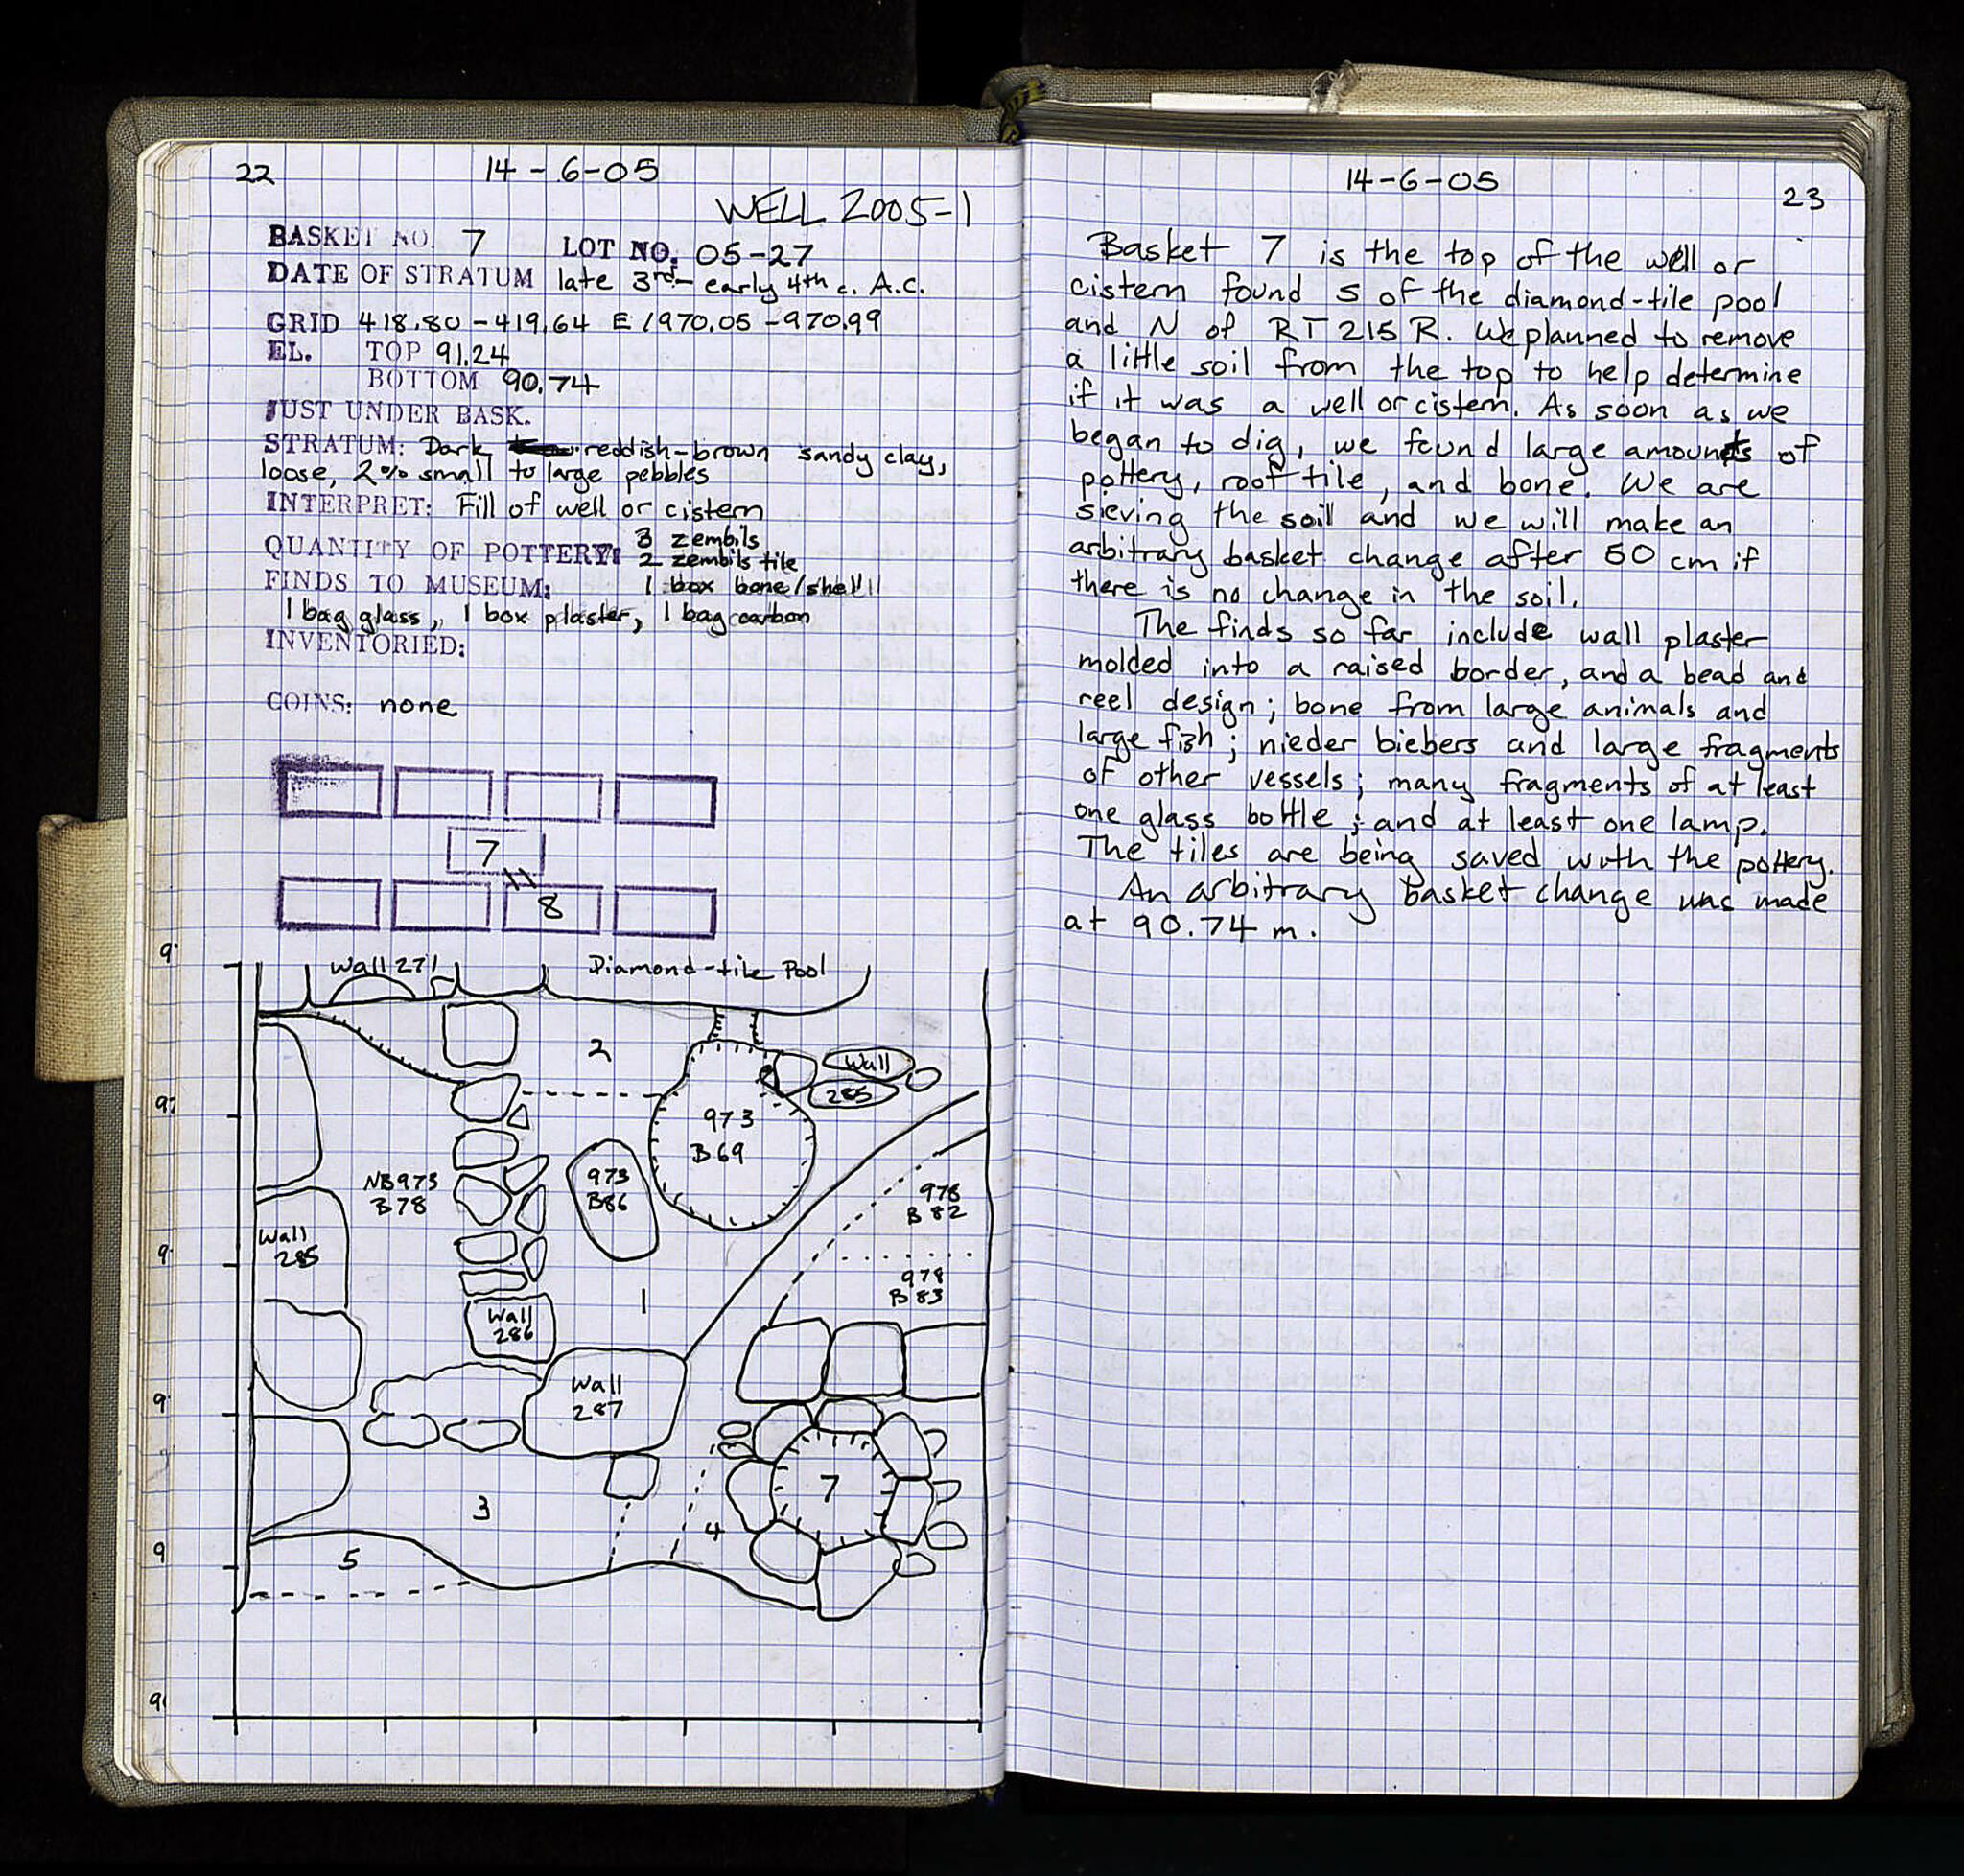 22
14-6-05
WELL 2005-1
BASKET NO. 7 LOT NO. 05-27
DATE OF STRATUM late 3rd- early 4th c. A.C.
GRID 418.80-419.64 E / 970.05-970.99
EL. TOP 91.24
BOTTOM 90.74
JUST UNDER BASK.
STRATUM: Dark reddish-brown sandy clay,
loose, 2% small to large pebbles
INTERPRET: Fill of well or cistern
QUANTITY OF POTTERY: 3 zembils
2 zembils tile
FINDS TO MUSEUM: 1 box bone/shell
1 bag glass, 1 box plaster, 1 bag carbon
INVENTORIED:
COINS: none
7
8
Wall 271
Diamond-tile Pool
2
Wall
285
973
B69
NB973
B78
973
B86
978
B 82
Wall
285
978
B 83
1
Wall
286
Wall
287
7
3
4
5
14-6-05
23
Basket 7 is the top of the well or
cistern found S of the diamond-tile pool
and N of RT 215 R. We planned to remove
a little soil from the top to help determine
if it was a well or cistern. As soon as we
began to dig, we found large amounts of
pottery, roof tile, and bone. We are
sieving the soil and we will make an
arbitrary basket change after 50 cm if
there is no change in the soil.
The finds so far include wall plaster
molded into a raised border, and a bead and
reel design; bone from large animals and
large fish; nieder biebers and large fragments
of other vessels; many fragments of at least
one glass bottle; and at least one lamp.
The tiles are being saved with the pottery.
An arbitrary basket change was made
at 90.74 m.